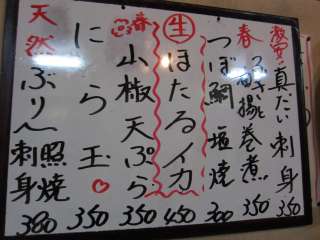 激安 真だい刺身 350
春 揚巻煮 350
つぼ鯛塩焼 300
生 ほたるイカ 450
春 小椒天ぷら 350
にら玉 350
天然ぶり 照焼 刺身 380